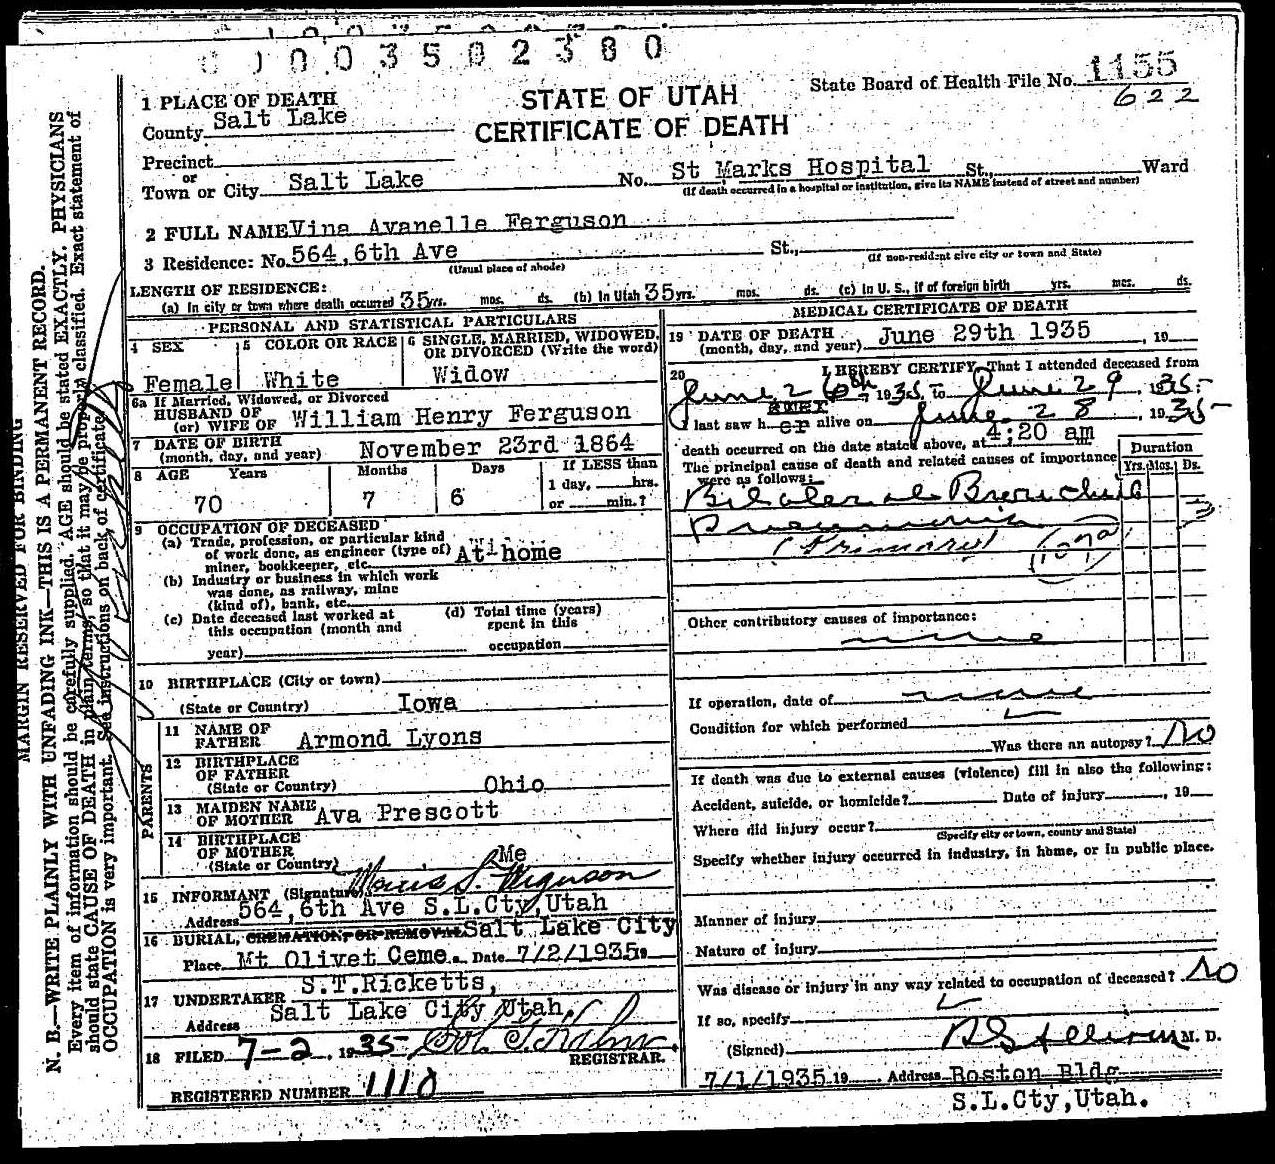 0003502380
State Board of Health File No. 1155
622
STATE OF UTAH
CERTIFICATE OF DEATH
1 PLACE OF DEATH
County Salt Lake
Precinct
or
Town or City Salt Lake No. St Marks Hospital St., Ward
(If death occurred in a hospital or institution, give its NAME instead of street and number)
2 FULL NAME Vina Avanelle Ferguson
3 Residence: No. 564, 6th Ave St.,
(Usual place of abode) (If non-resident give city or town and State)
LENGTH OF RESIDENCE:
(a) In city or town where death occurred 35 yrs. mos. ds. (b) In Utah 35 yrs. mos. ds. (c) In U. S., if of foreign birth yrs. mos. ds.
PERSONAL AND STATISTICAL PARTICULARS
4 SEX Female
5 COLOR OR RACE White
6 SINGLE, MARRIED, WIDOWED, OR DIVORCED (Write the word) Widow
6a If Married, Widowed, or Divorced
HUSBAND OF
(or) WIFE OF William Henry Ferguson
7 DATE OF BIRTH
(month, day, and year) November 23rd 1864
8 AGE Years Months Days If LESS than
1 day, hrs.
70 7 6 or min.?
9 OCCUPATION OF DECEASED
(a) Trade, profession, or particular kind
of work done, as engineer (type of)
miner, bookkeeper, etc. At home
(b) Industry or business in which work
was done, as railway, mine
(kind of), bank, etc.
(c) Date deceased last worked at
this occupation (month and
year)
(d) Total time (years)
spent in this
occupation
10 BIRTHPLACE (City or town)
(State or Country) Iowa
PARENTS
11 NAME OF
FATHER Armond Lyons
12 BIRTHPLACE
OF FATHER
(State or Country) Ohio
13 MAIDEN NAME
OF MOTHER Ava Prescott
14 BIRTHPLACE
OF MOTHER
(State or Country) Me
15 INFORMANT (Signature) S. Ferguson
Address 564, 6th Ave S.L.Cty, Utah
16 BURIAL, CREMATION, OR REMOVAL Salt Lake City
Place Mt Olivet Ceme. Date 7/2/1935
17 UNDERTAKER S.T.Ricketts,
Address Salt Lake City Utah.
18 FILED 7-2, 1935 Sol. G. Kahn
REGISTRAR.
REGISTERED NUMBER 1110
MEDICAL CERTIFICATE OF DEATH
19 DATE OF DEATH
(month, day, and year) June 29th 1935, 19
20 I HEREBY CERTIFY, That I attended deceased from
June 26th, 1935, to June 29, 1935
I last saw her alive on June 28, 1935
death occurred on the date stated above, at 4:20 am
The principal cause of death and related causes of importance
were as follows:
Duration
Yrs. Mos. Ds.
Bilateral Bronchial
Pneumonia
(Primary) 107a
Other contributory causes of importance:
none
If operation, date of none
Condition for which performed
Was there an autopsy? No
If death was due to external causes (violence) fill in also the following:
Accident, suicide, or homicide? Date of injury, 19
Where did injury occur?
(Specify city or town, county and State)
Specify whether injury occurred in industry, in home, or in public place.
Manner of injury
Nature of injury
Was disease or injury in any way related to occupation of deceased? No
If so, specify
(Signed) M. D.
7/1/1935 19 Address Boston Bldg
S.L.Cty, Utah.
MARGIN RESERVED FOR BINDING
N. B.—WRITE PLAINLY WITH UNFADING INK—THIS IS A PERMANENT RECORD.
Every item of information should be carefully supplied. AGE should be stated EXACTLY. PHYSICIANS
should state CAUSE OF DEATH in plain terms, so that it may be properly classified. Exact statement of
OCCUPATION is very important. See instructions on back of certificate.